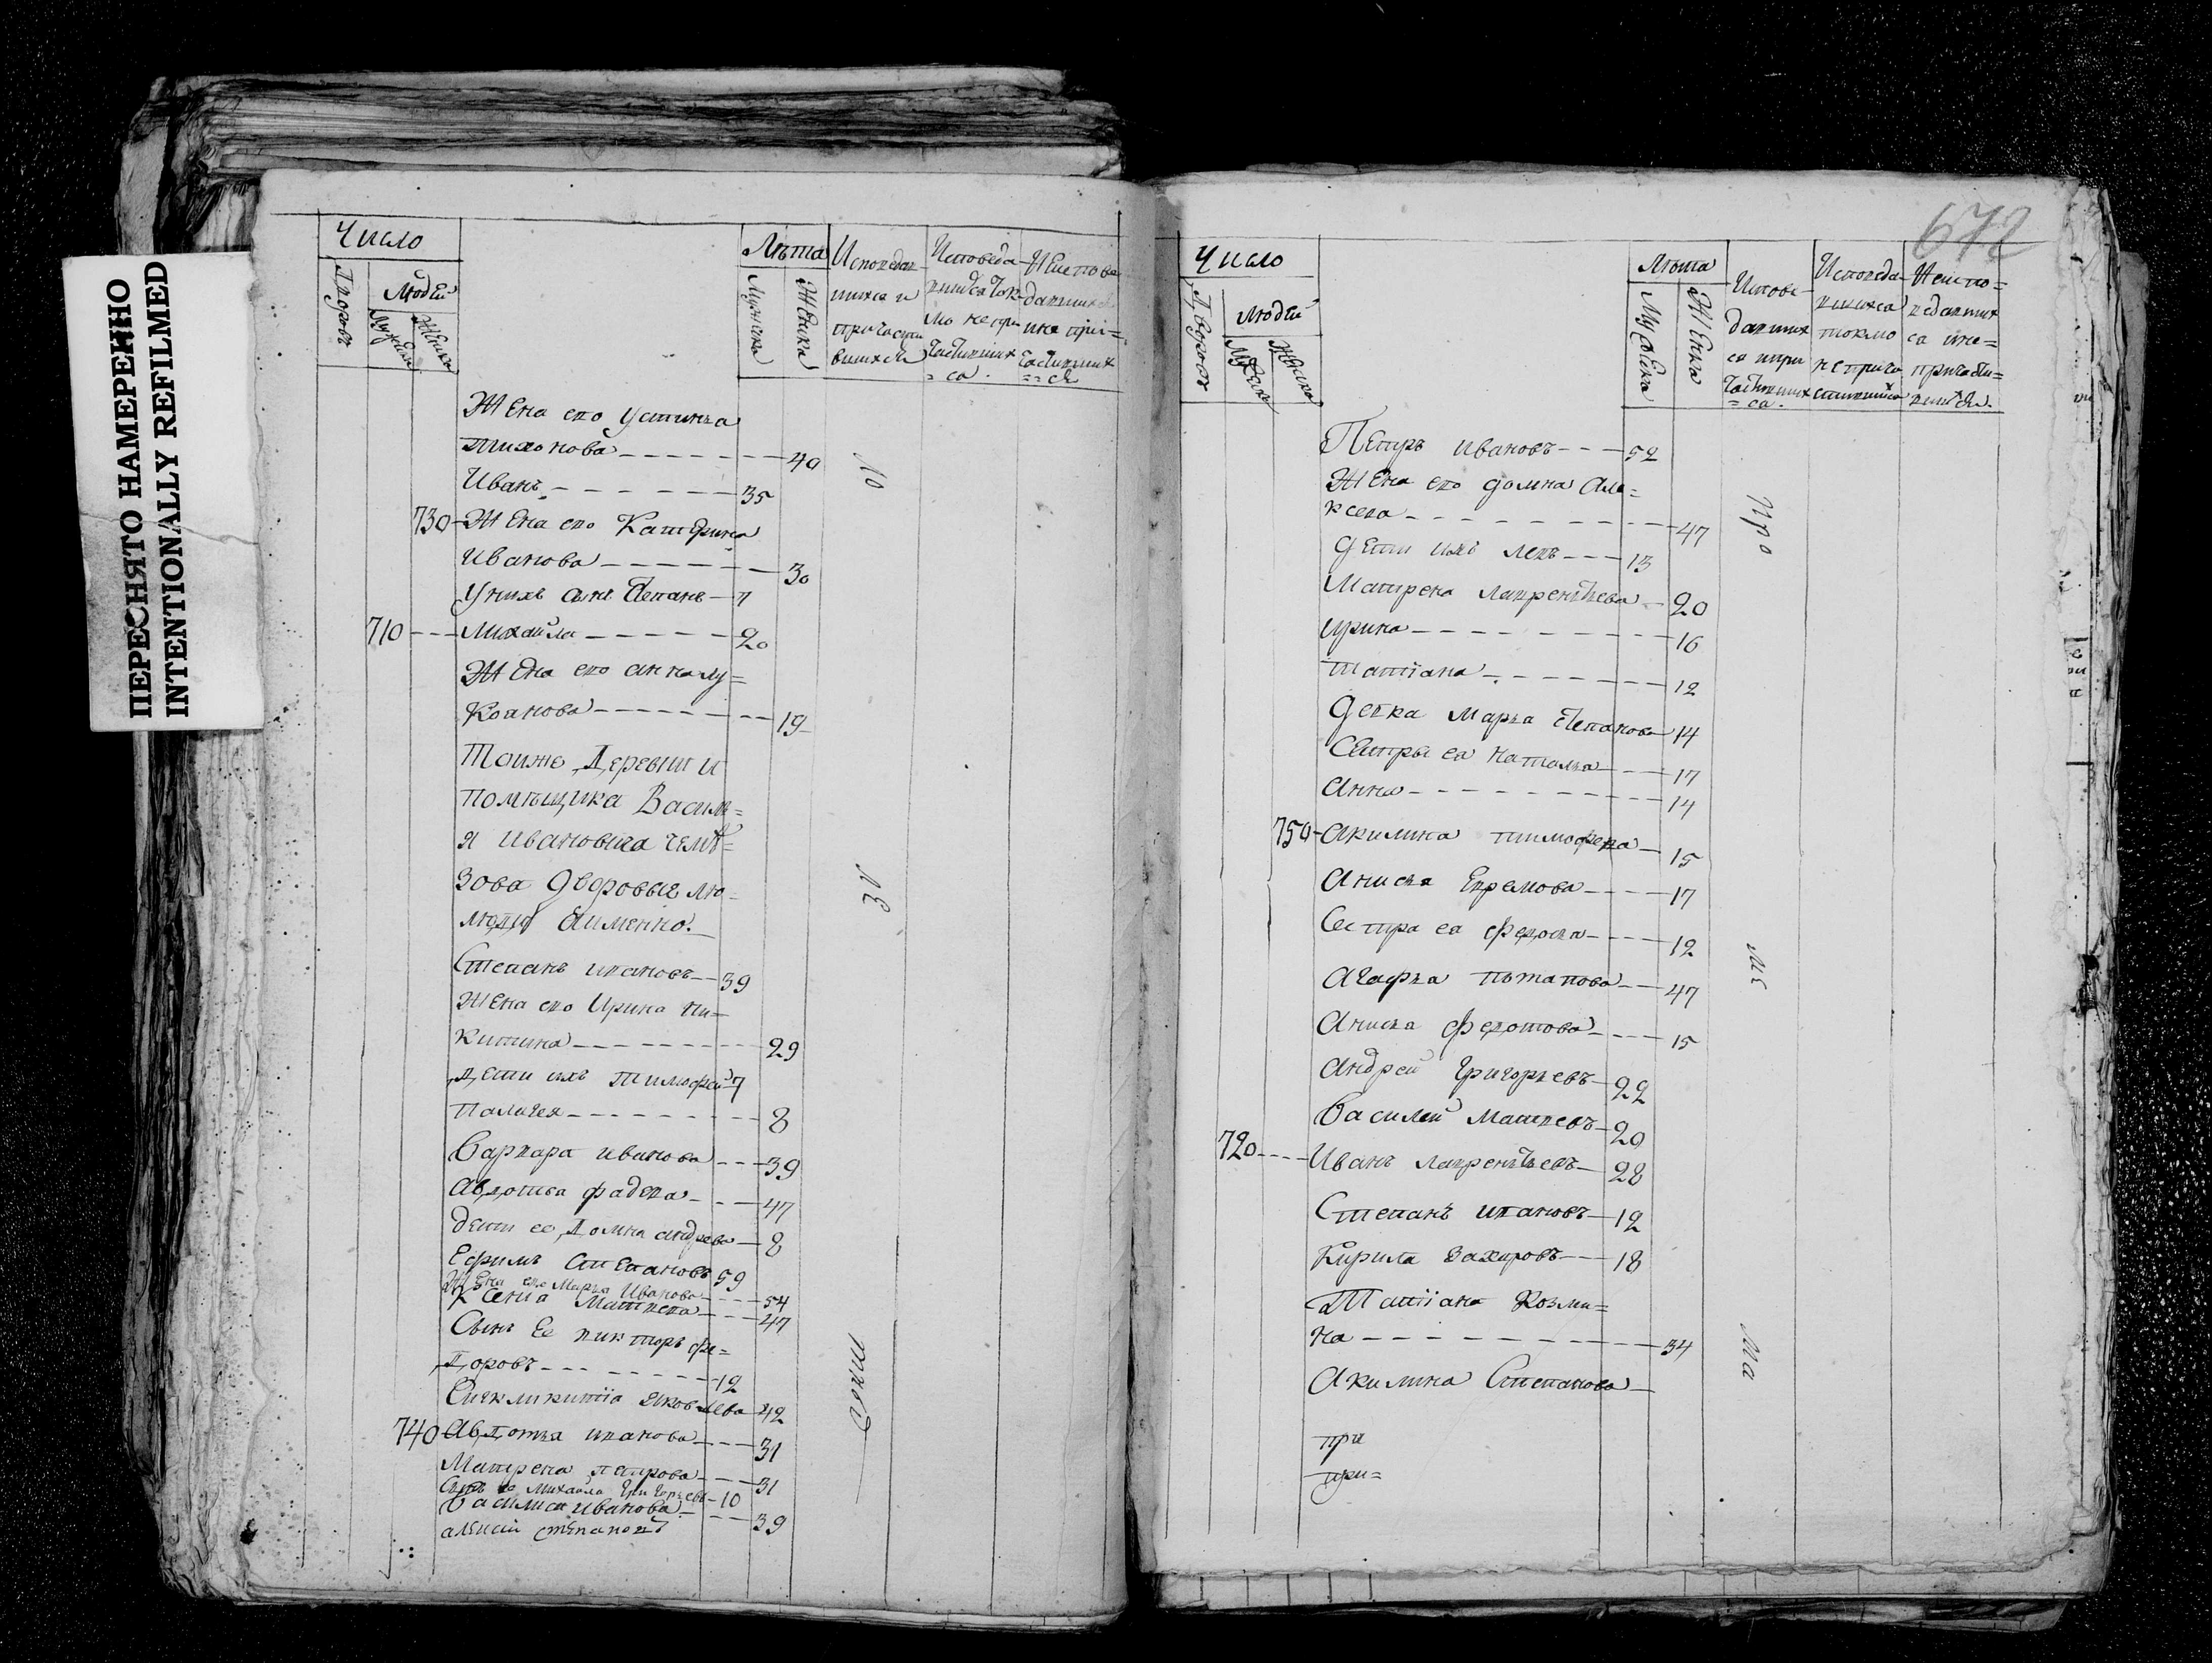 ПЕРЕСНЯТО НАМЕРЕННО
INTENTIONALLY REFILMED
Число
Дворовъ
Людей
Мужеска
Женска
Лѣта
Мужеска
Женска
Исповедав
шихся и
причасти
вшихся
Исповеда
вшихся ток
мо не при
частившихъ
=ся.
Не испове
давшихся
и не при=
частившихъ
==ся
Жена его Устинья
Тихонова - - - - - - - 40
Иванъ - - - - - - 35
730 - Жена его Катерина
Иванова - - - - - - - 30
У нихъ сынъ Степанъ - 7
710 - - - Михайла - - - - - 20
Жена его Анна Лу=
коянова - - - - - - - 19
Тоиже деревни и
помѣщика Василь=
я Ивановича Чемѣ=
зова дворовые лю-
люди а именно.
Степанъ Ивановъ - - 39
Жена его Ирина Ни=
китина - - - - - - - - 29
дети ихъ Тимофей - 7
Палагея - - - - - - - - 8
Варвара Иванова - - - 39
Авдотья Фадева - - - 47
дети ее Домна Андрева - 8
Ефимъ Степановъ 59
Жена его Марья Иванова - - - 54
Ксенья Матвева - - - 47
Сынъ Ее Викторъ Фе=
доровъ - - - - - - - - 12
Яковлева - 42
740 Авдотья Иванова - - - 31
Матрена Петрова - - - 31
Сынъ ее Михайла Григорьевъ - 10
Василиса Иванова - - - 39
Алексей Степановъ
10
30
672
Число
Дворовъ
Людей
Мужска
Женска
Лѣта
Мужеска
Женска
Испове
давших
ся и при
частивших
=ся.
Исповеда
вшихся
токмо
не прича
стившихся
Не испо=
ведавших
ся и не=
причасти=
вшихся.
Петръ Ивановъ - - - 52
Жена его Домна Але=
ксева - - - - - - - - - 47
дети ихъ Левъ - - - 13
Матрена Лаврентьева - 20
Ирина - - - - - - - - - 16
Татiана - - - - - - - - 12
девка Марья Степанова 14
Сестры ея Наталья - - - 17
Анна - - - - - - - - - 14
750 - Акилина Тимофева - 15
Анисья Ефремова - - - - 17
Сестра ея Федосья - - - - 12
Агафья Потапова - - - 47
Анисья Федотова - - - - 15
Андрей Григорьевъ - 22
Василей Матвевъ - 20
720 - - - - Иванъ Лаврентьевъ - 28
Степанъ Ивановъ - 12
Кирила Захаровъ - - 18
Татiана Козми=
на - - - - - - - - - - 34
Акилина Степанова -
при
при=
Про
Ма